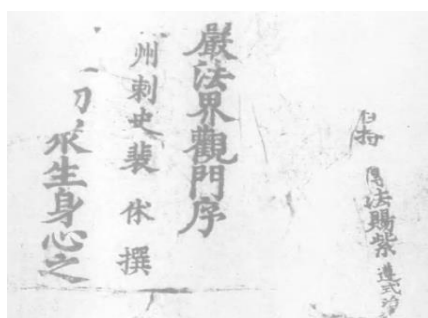 法賜紫遵式
嚴法界觀門序
州刺史裴休撰
一生身心之